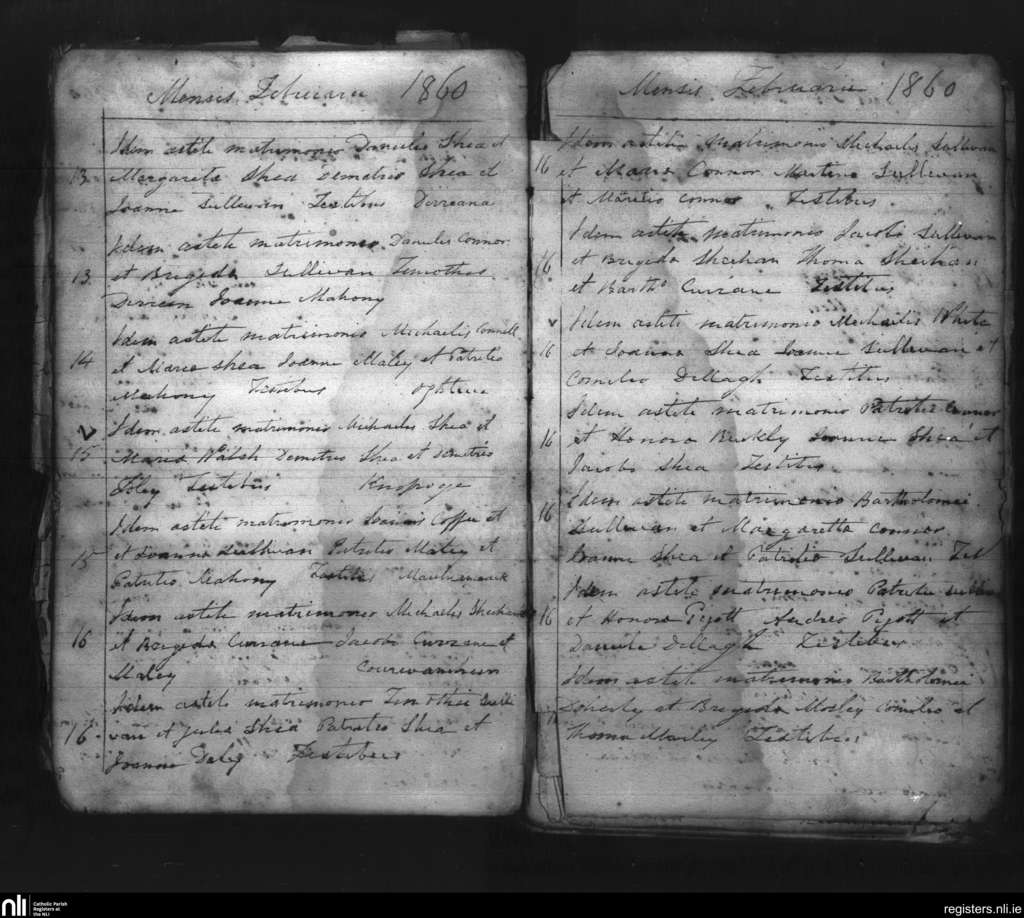 Mensis Februarii 1860
Idem astite matrimonio Danielis Shea et
13 Margareta Shea Demetrio Shea et
Joanne Sullivan Testibus Derreana
Idem astite matrimonio Danielis Connor
13 et Brigida Sullivan Timotheo
Derreen Joanne Mahony
Idem astite matrimonio Michaelis Connell
14 et Maria Shea Joanne Maley et Patritio
Mahony Testibus
Idem astite matrimonio Michaelis Shea et
15 Maria Walsh Demetrio Shea et Demetrio
Foley Testibus Knopoge
Idem astite matrimonio Joannis Coffee et
15 et Joanna Sullivan Patritio Maley et
Patritio Mahony Testibus
Idem astite matrimonio Michaelis Sheehan
16 et Brigida Currane Jacobo Currane et
Maley
Idem astite matrimonio Timothei Sulli
16 van et Julia Shea Patritio Shea et
Joanne Daly Testibus
Mensis Februarii 1860
Idem astite matrimonio Michaelis Sullivan
16 et Maria Connor Martino Sullivan
et Mauritio Connor Testibus
Idem astite matrimonio Jacobi Sullivan
16 et Brigida Sheehan Thoma Sheehan
et Bartho Currane Testibus
Idem astiti matrimonio Michaelis White
16 et Joanna Shea Joanne Sullivan et
Cornelio Dillagh Testibus
Idem astite matrimonio Patritii Connor
16 et Honora Buckly Joanne Shea et
Jacobo Shea Testibus
Idem astite matrimonio Bartholomei
16 Sullivan et Margaretta Connor
Joanne Shea et Patritio Sullivan Tes
Idem astite matrimonio Patritii Sullivan
16 et Honora Pigott Andreo Pigott et
Daniele Dillagh Testibus
Idem astite matrimonio Bartholomei
Doherty et Brigida Mosley Cornelio et
Thoma Marley Testibus
nli Catholic Parish
Registers at
the NLI
registers.nli.ie